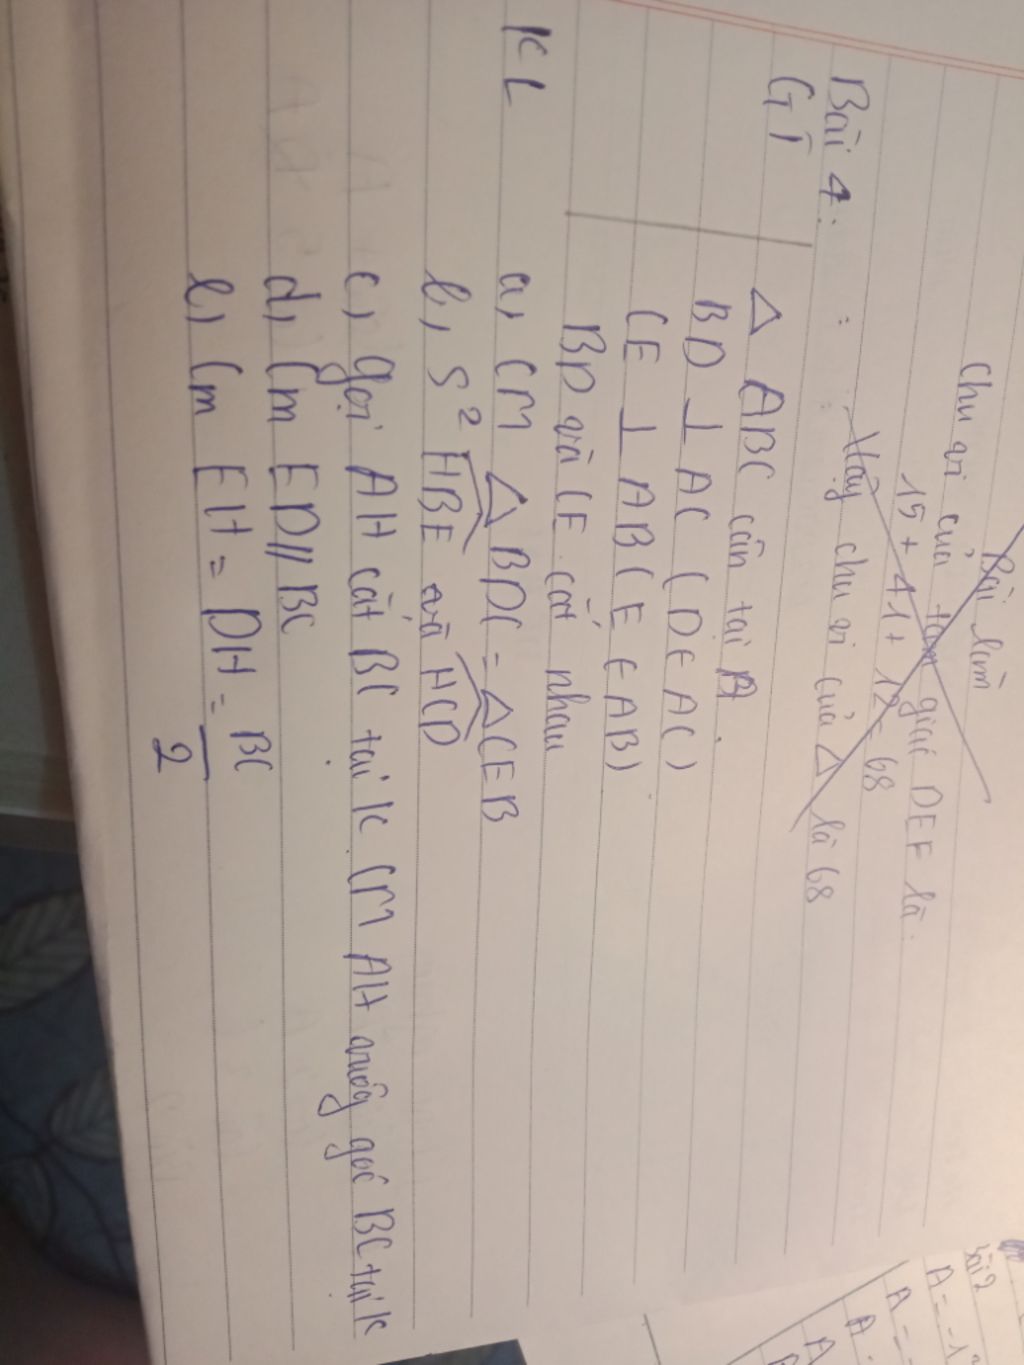 Bài làm
Chu vi của tam giác DEF là.
15 + 41 + 12 = 68
Vậy chu vi của Δ là 68
Bài 4:
GT
Δ ABC cân tại A.
BD ⊥ AC (D ∈ AC)
CE ⊥ AB (E ∈ AB)
BD và CE cắt nhau
KL
a, CM Δ BDC = Δ CEB
b, S² HBE và HCD
c, gọi AH cắt BC tại K CM AH vuông góc BC tại K
d, Cm ED // BC
e, Cm EH = DH = BC/2
Bài 2
A = -1
A = -
A =
A